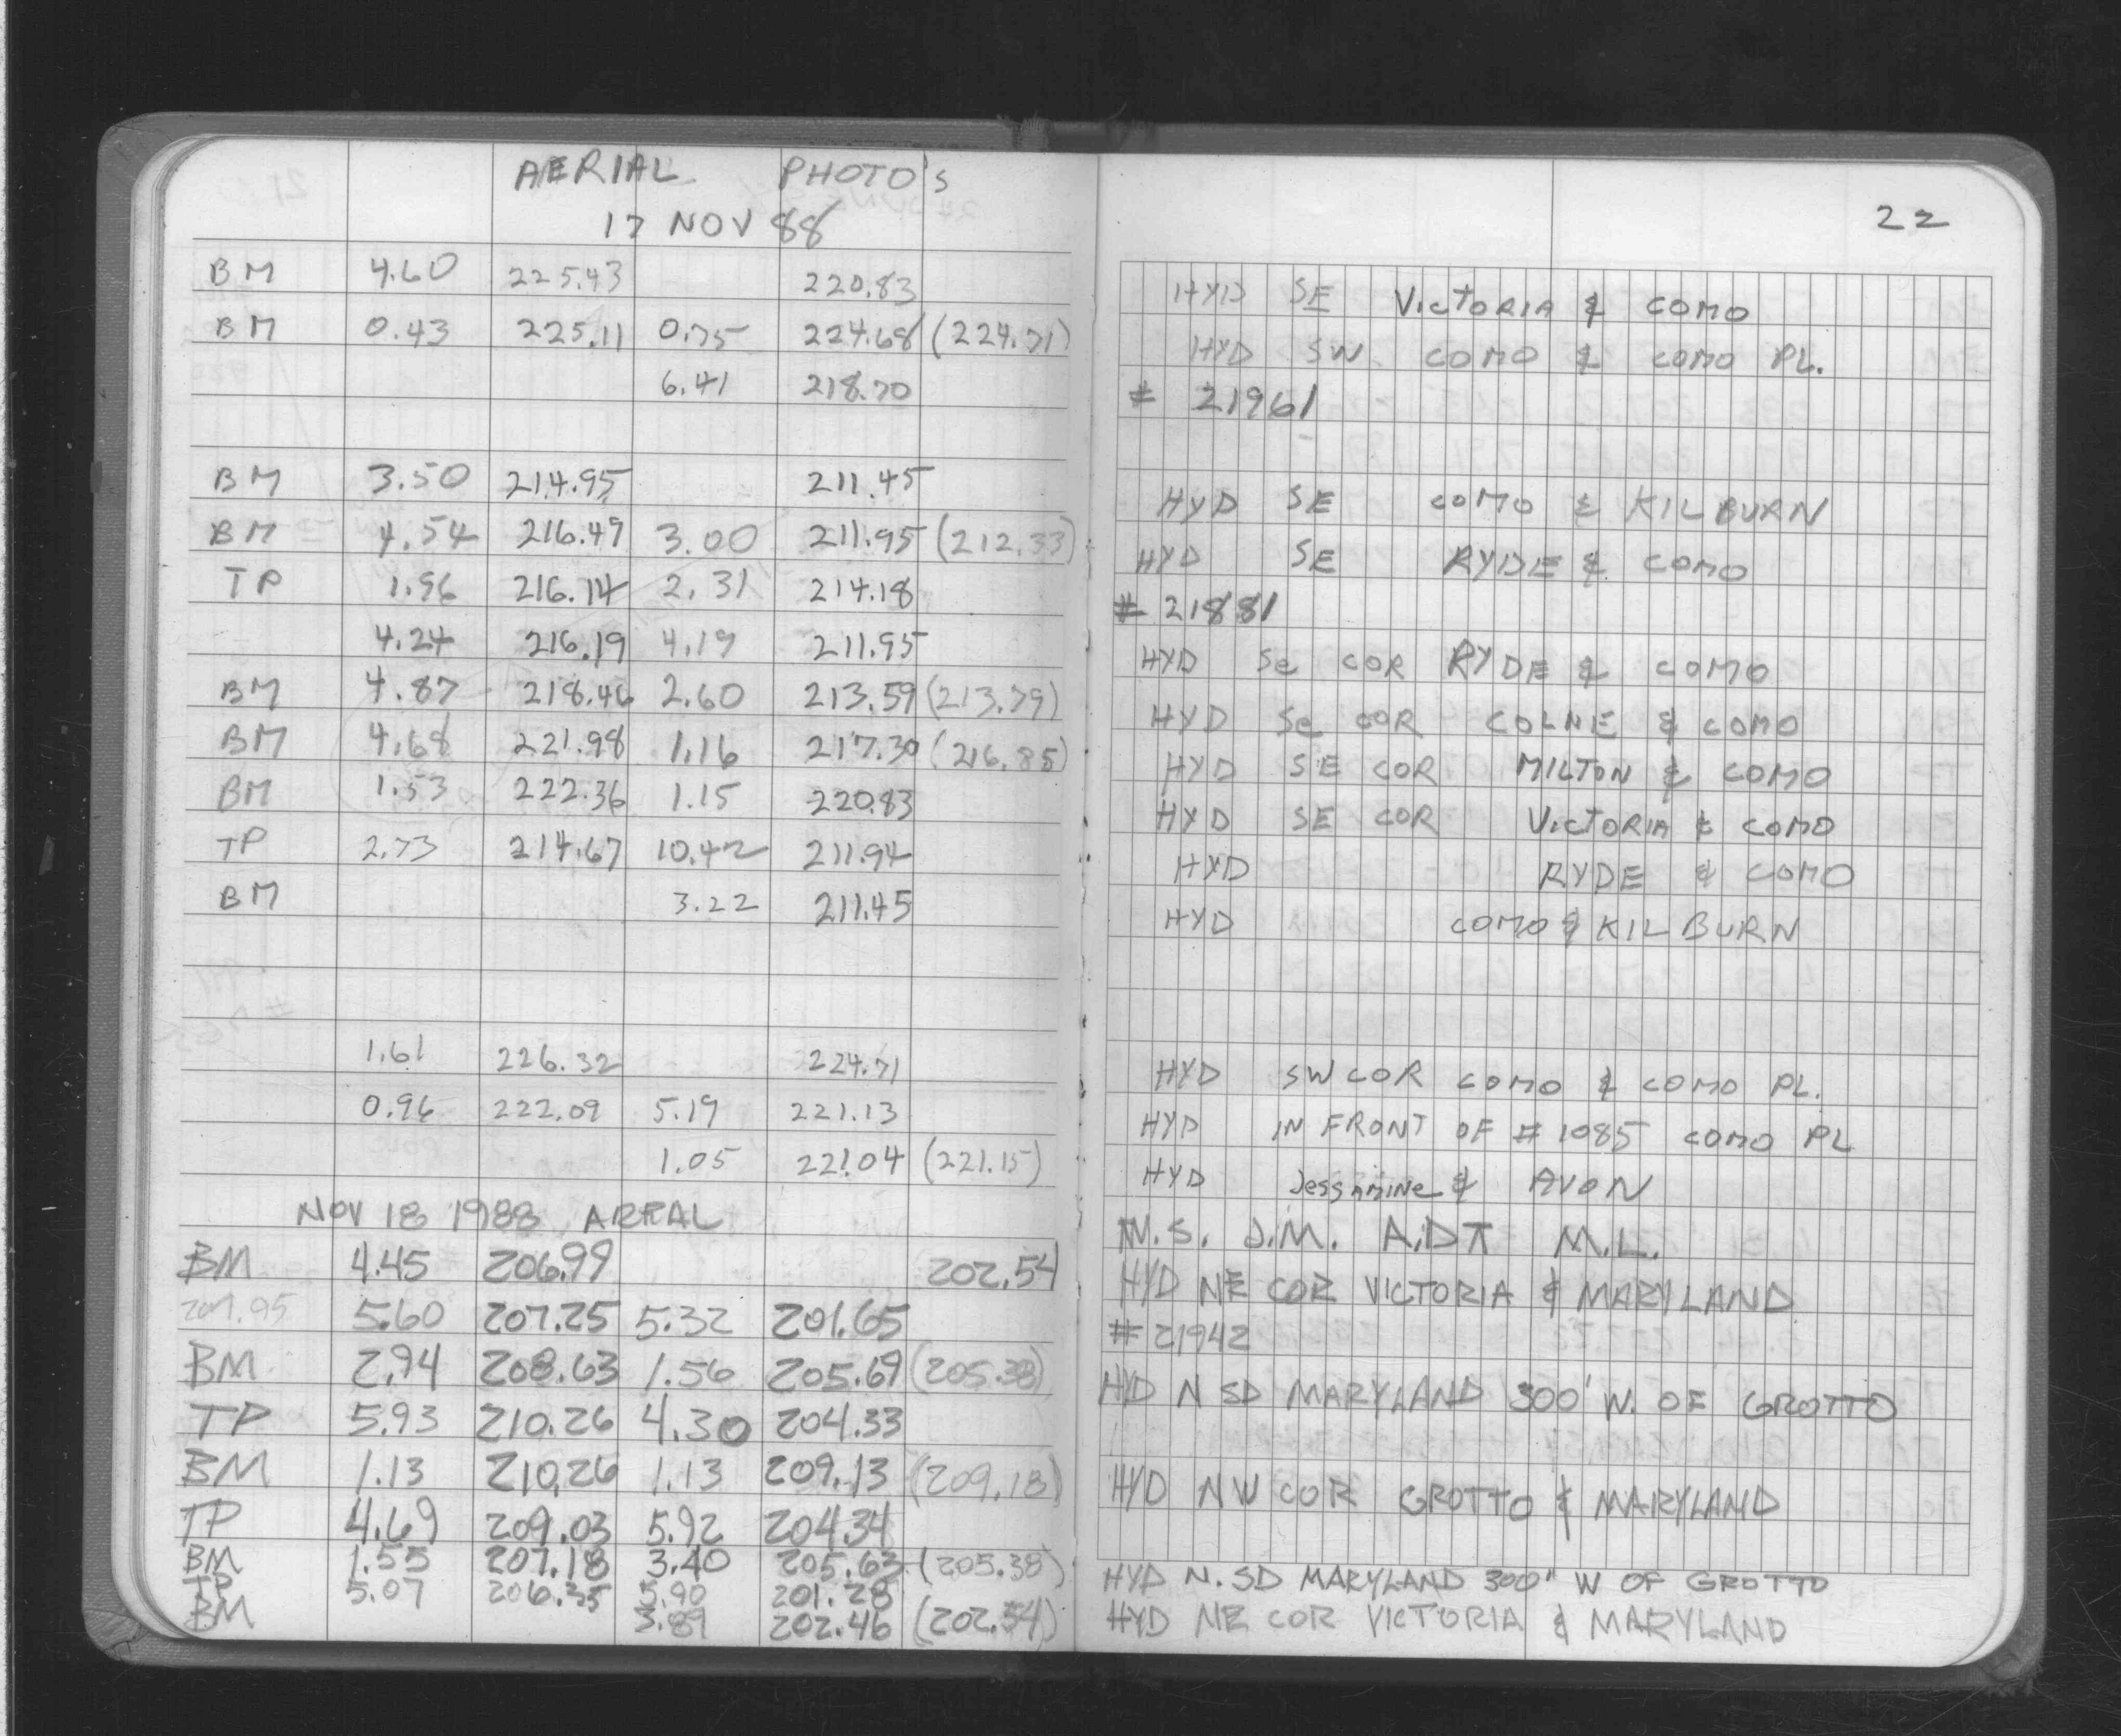 AERIAL PHOTO'S
17 NOV 88
22
BM 4.60 225.43 220.83 HYD SE VICTORIA & COMO
BM 0.43 225.11 0.75 224.68 (224.71) HYD SW COMO & COMO PL.
6.41 218.70 # 21961
BM 3.50 214.95 211.45 HYD SE COMO & KILBURN
BM 4.54 216.49 3.00 211.95 (212.33) HYD SE RYDE & COMO
TP 1.96 216.14 2.31 214.18 # 21881
4.24 216.19 4.19 211.95 HYD Se COR RYDE & COMO
BM 4.87 218.46 2.60 213.59 (213.79) HYD Se COR COLNE & COMO
BM 4.68 221.98 1.16 217.30 (216.85) HYD SE COR MILTON & COMO
BM 1.53 222.36 1.15 220.83 HYD SE COR VICTORIA & COMO
TP 2.73 214.67 10.42 211.94 HYD RYDE & COMO
BM 3.22 211.45 HYD COMO & KILBURN
1.61 226.32 224.71 HYD SW COR COMO & COMO PL.
0.96 222.09 5.19 221.13 HYD IN FRONT OF # 1085 COMO PL
1.05 221.04 (221.15) HYD Jessamine & AVON
NOV 18 1988 AREAL M.S. J.M. A.DT M.L.
BM 4.45 206.99 202.54 HYD NE COR VICTORIA & MARYLAND
5.60 207.25 5.32 201.65 # 21942
BM 2.94 208.63 1.56 205.69 (205.38) HYD N SD MARYLAND 300' W. OF GROTTO
TP 5.93 210.26 4.30 204.33
BM 1.13 210.26 1.13 209.13 (209.18) HYD NW COR GROTTO & MARYLAND
TP 4.69 209.03 5.92 204.34
BM 1.55 207.18 3.40 205.63 (205.38) HYD N. SD MARYLAND 300" W OF GROTTO
TP 5.07 206.35 5.90 201.28
BM 3.89 202.46 (202.54) HYD NE COR VICTORIA & MARYLAND